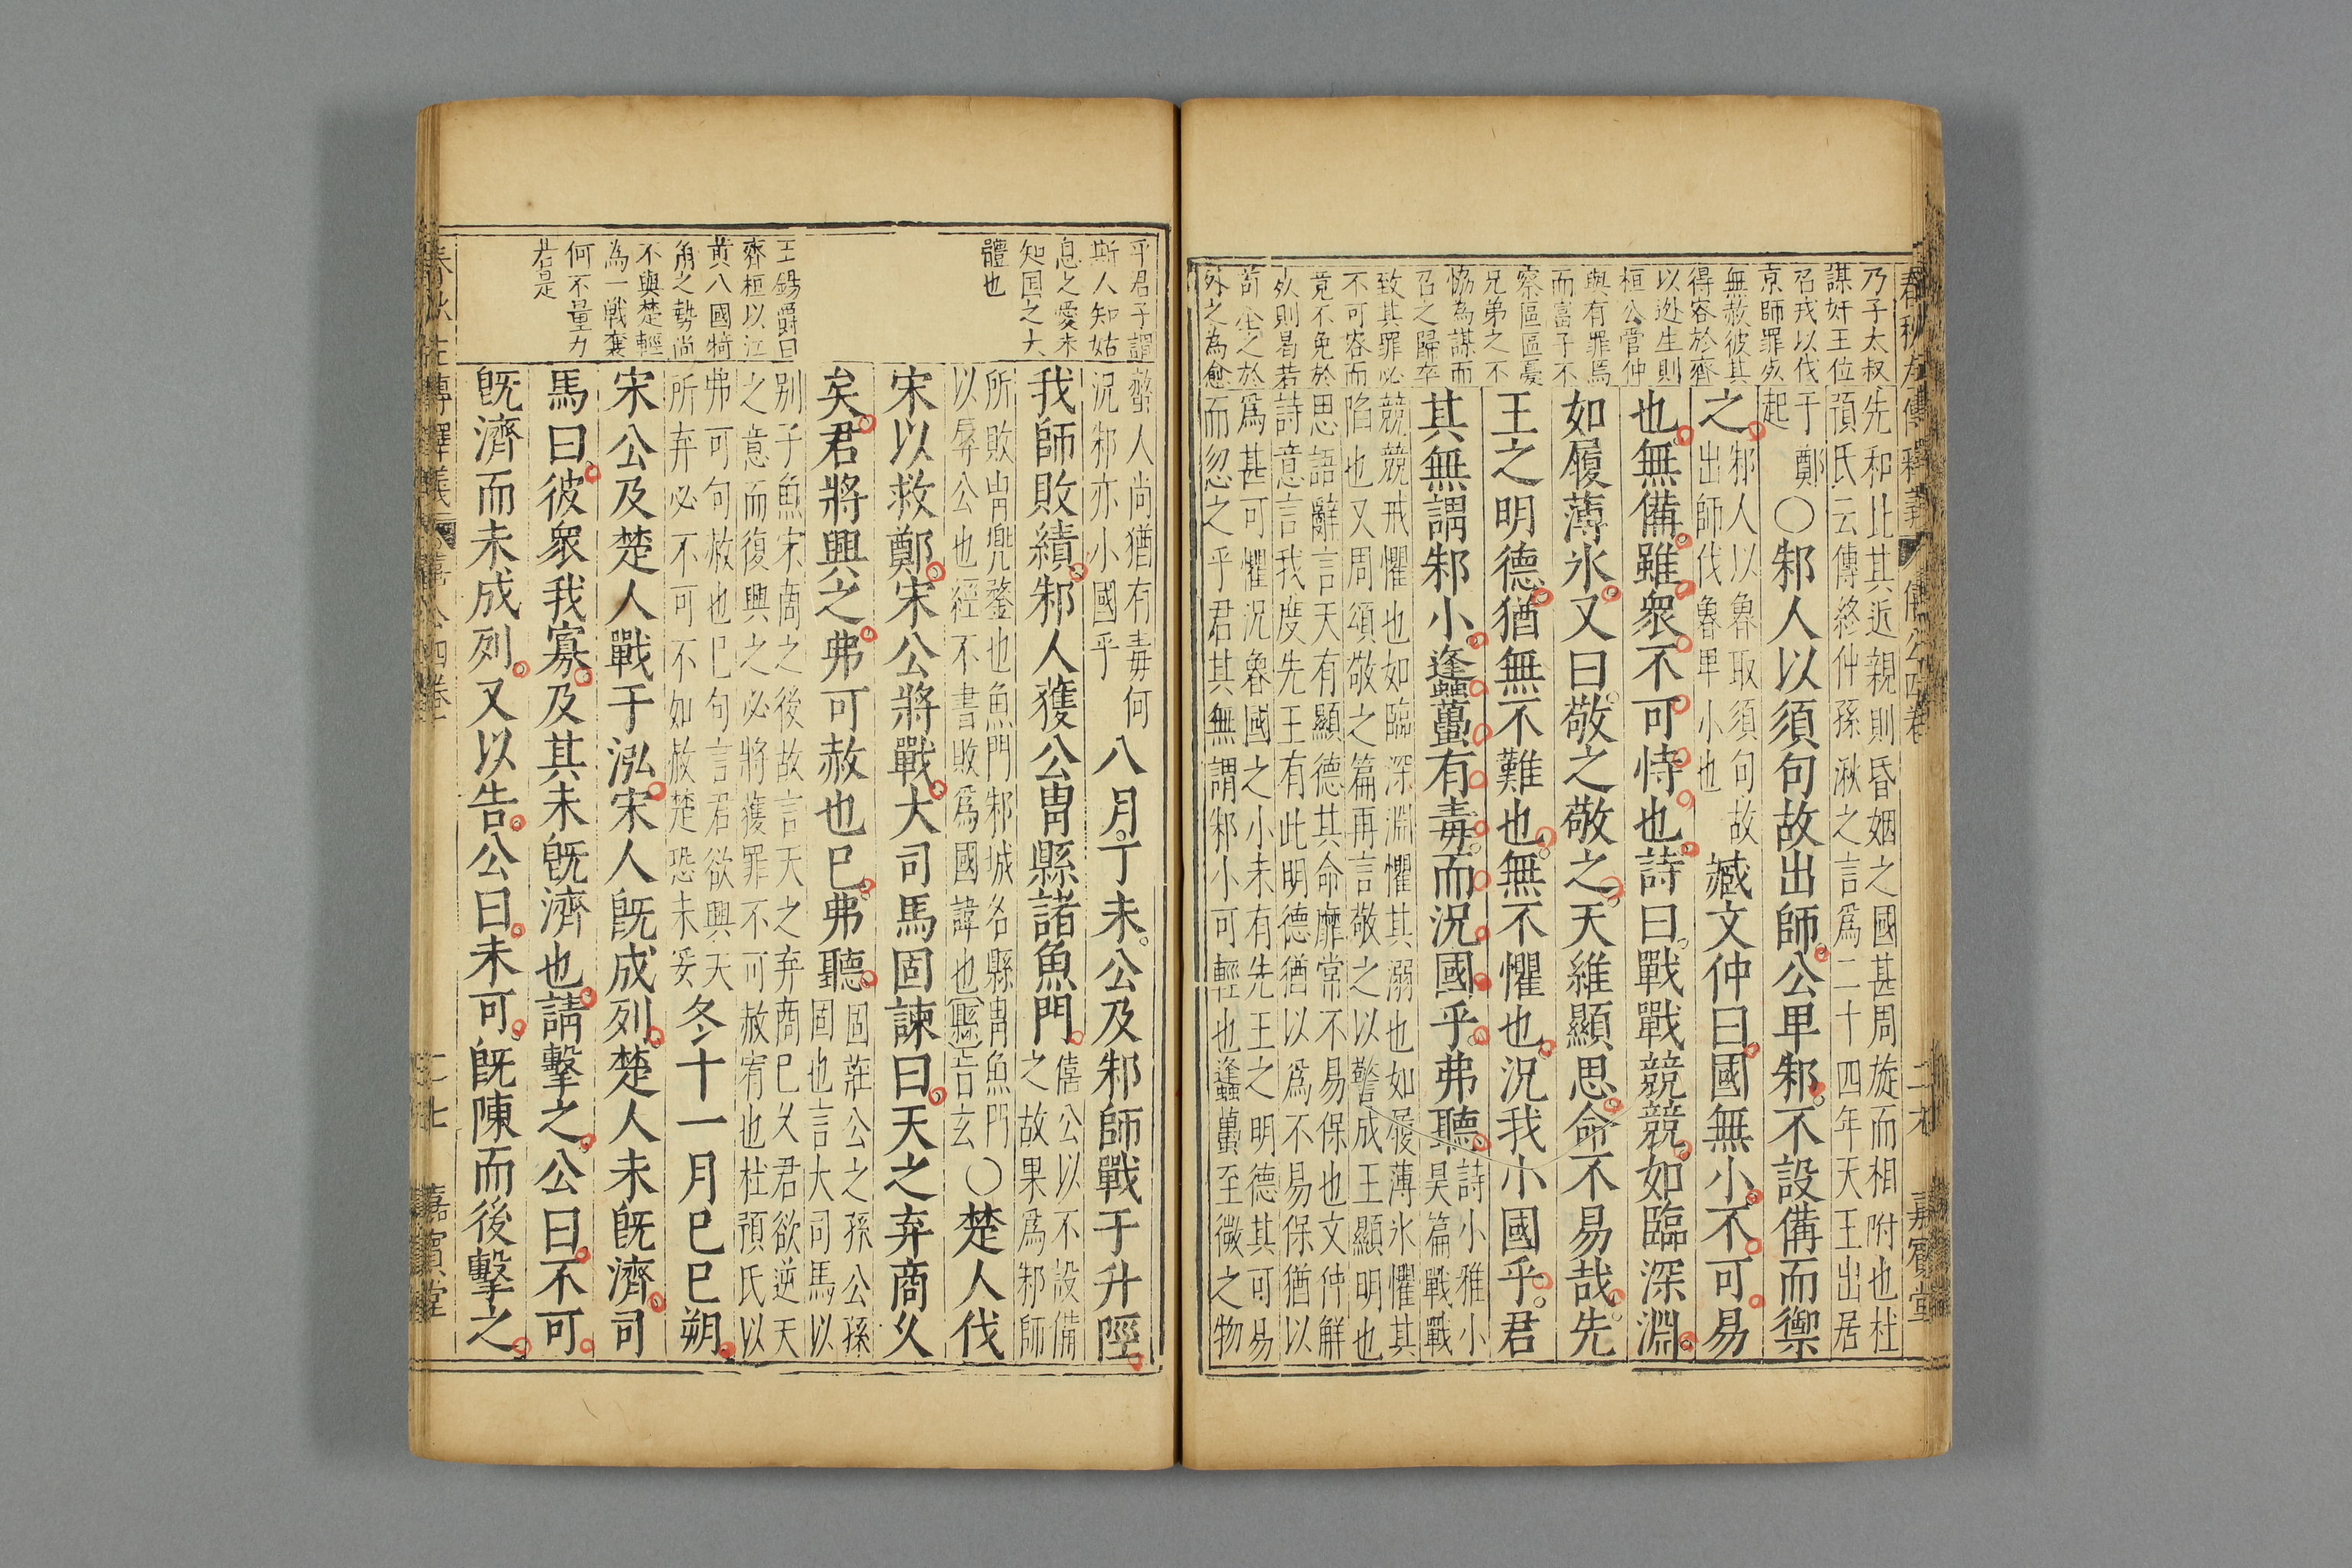 春秋左傳釋義 僖公四卷 二六 嘉賓堂
乃子太叔
謀奸王位
召戎以伐
京師罪矣
無赦彼其
得容於齊
以逃生則
桓公管仲
與有罪焉
而富子不
察區區憂
兄弟之不
協為謀而
召之歸卒
致其罪必
不可容而
竟不免於
矣則曷若
苟全之於
外之為愈
先和比其近親則昏姻之國甚周旋而相附也杜
預氏云傳終仲孫湫之言爲二十四年天王出居
于鄭
起
○邾人以須句故出師。公卑邾。不設備而禦
之。
邾人以魯取須句故
出師伐魯卑小也
臧文仲曰。國無小。不可易
也。無備。雖衆。不可恃也。詩曰。戰戰競競。如臨深淵。
如履薄氷。又曰。敬之敬之。天維顯思。命不易哉。先
王之明德。猶無不難也。無不懼也。況我小國乎。君
其無謂邾小。蠭蠆有毒。而況國乎。弗聽。
詩小雅小
旻篇戰戰
競競戒懼也如臨深淵懼其溺也如履薄氷懼其
陷也又周頌敬之篇再言敬之以警成王顯明也
思語辭言天有顯德其命靡常不易保也文仲解
詩意言我度先王有此明德猶以爲不易保猶以
爲甚可懼況魯國之小未有先王之明德其可易
而忽之乎君其無謂邾小可輕也蠭蠆至微之物
乎君子謂
斯人知姑
息之愛未
知国之大
體也
王錫爵曰
齊桓以江
黄八國犄
角之勢尚
不與楚輕
為一戰襄
何不量力
若是
螫人尚猶有毒何
況邾亦小國乎
八月。丁未。公及邾師戰于升陘。
我師敗績。邾人獲公胄縣諸魚門。
僖公以不設備
之故果爲邾師
所敗胄兜鍪也魚門邾城名縣胄魚門
以辱公也經不書敗爲國諱也縣音玄
○楚人伐
宋以救鄭。宋公將戰。大司馬固諫曰。天之弃商久
矣。君將興之。弗可赦也巳。弗聽。
固莊公之孫公孫
固也言大司馬以
別子魚宋商之後故言天之弃商巳久君欲逆天
之意而復興之必將獲罪不可赦宥也杜預氏以
弗可句赦也巳句言君欲興天
所弃必不可不如赦楚恐未妥
冬十一月巳巳朔。
宋公及楚人戰于泓。宋人旣成列。楚人未旣濟。司
馬曰。彼衆我寡。及其未旣濟也。請擊之。公曰。不可。
旣濟而未成列。又以告。公曰。未可。旣陳而後擊之。
春秋左傳釋義 僖公四卷 二七 嘉賓堂